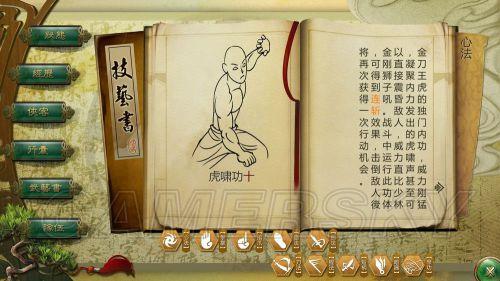 狀態
經歷
俠客
行囊
武藝書
隊伍
技藝書
虎啸功十
心法
金刀王虎的独门内功,威力刚猛
,凝聚内力发出的虎啸声甚至可
以直接震昏敌人,威力直比少林
金刚狮子吼。战斗中运行此功体
,可得连斩效果,击倒敌人後
将再次获得一次行动机会。
GAMERSKY